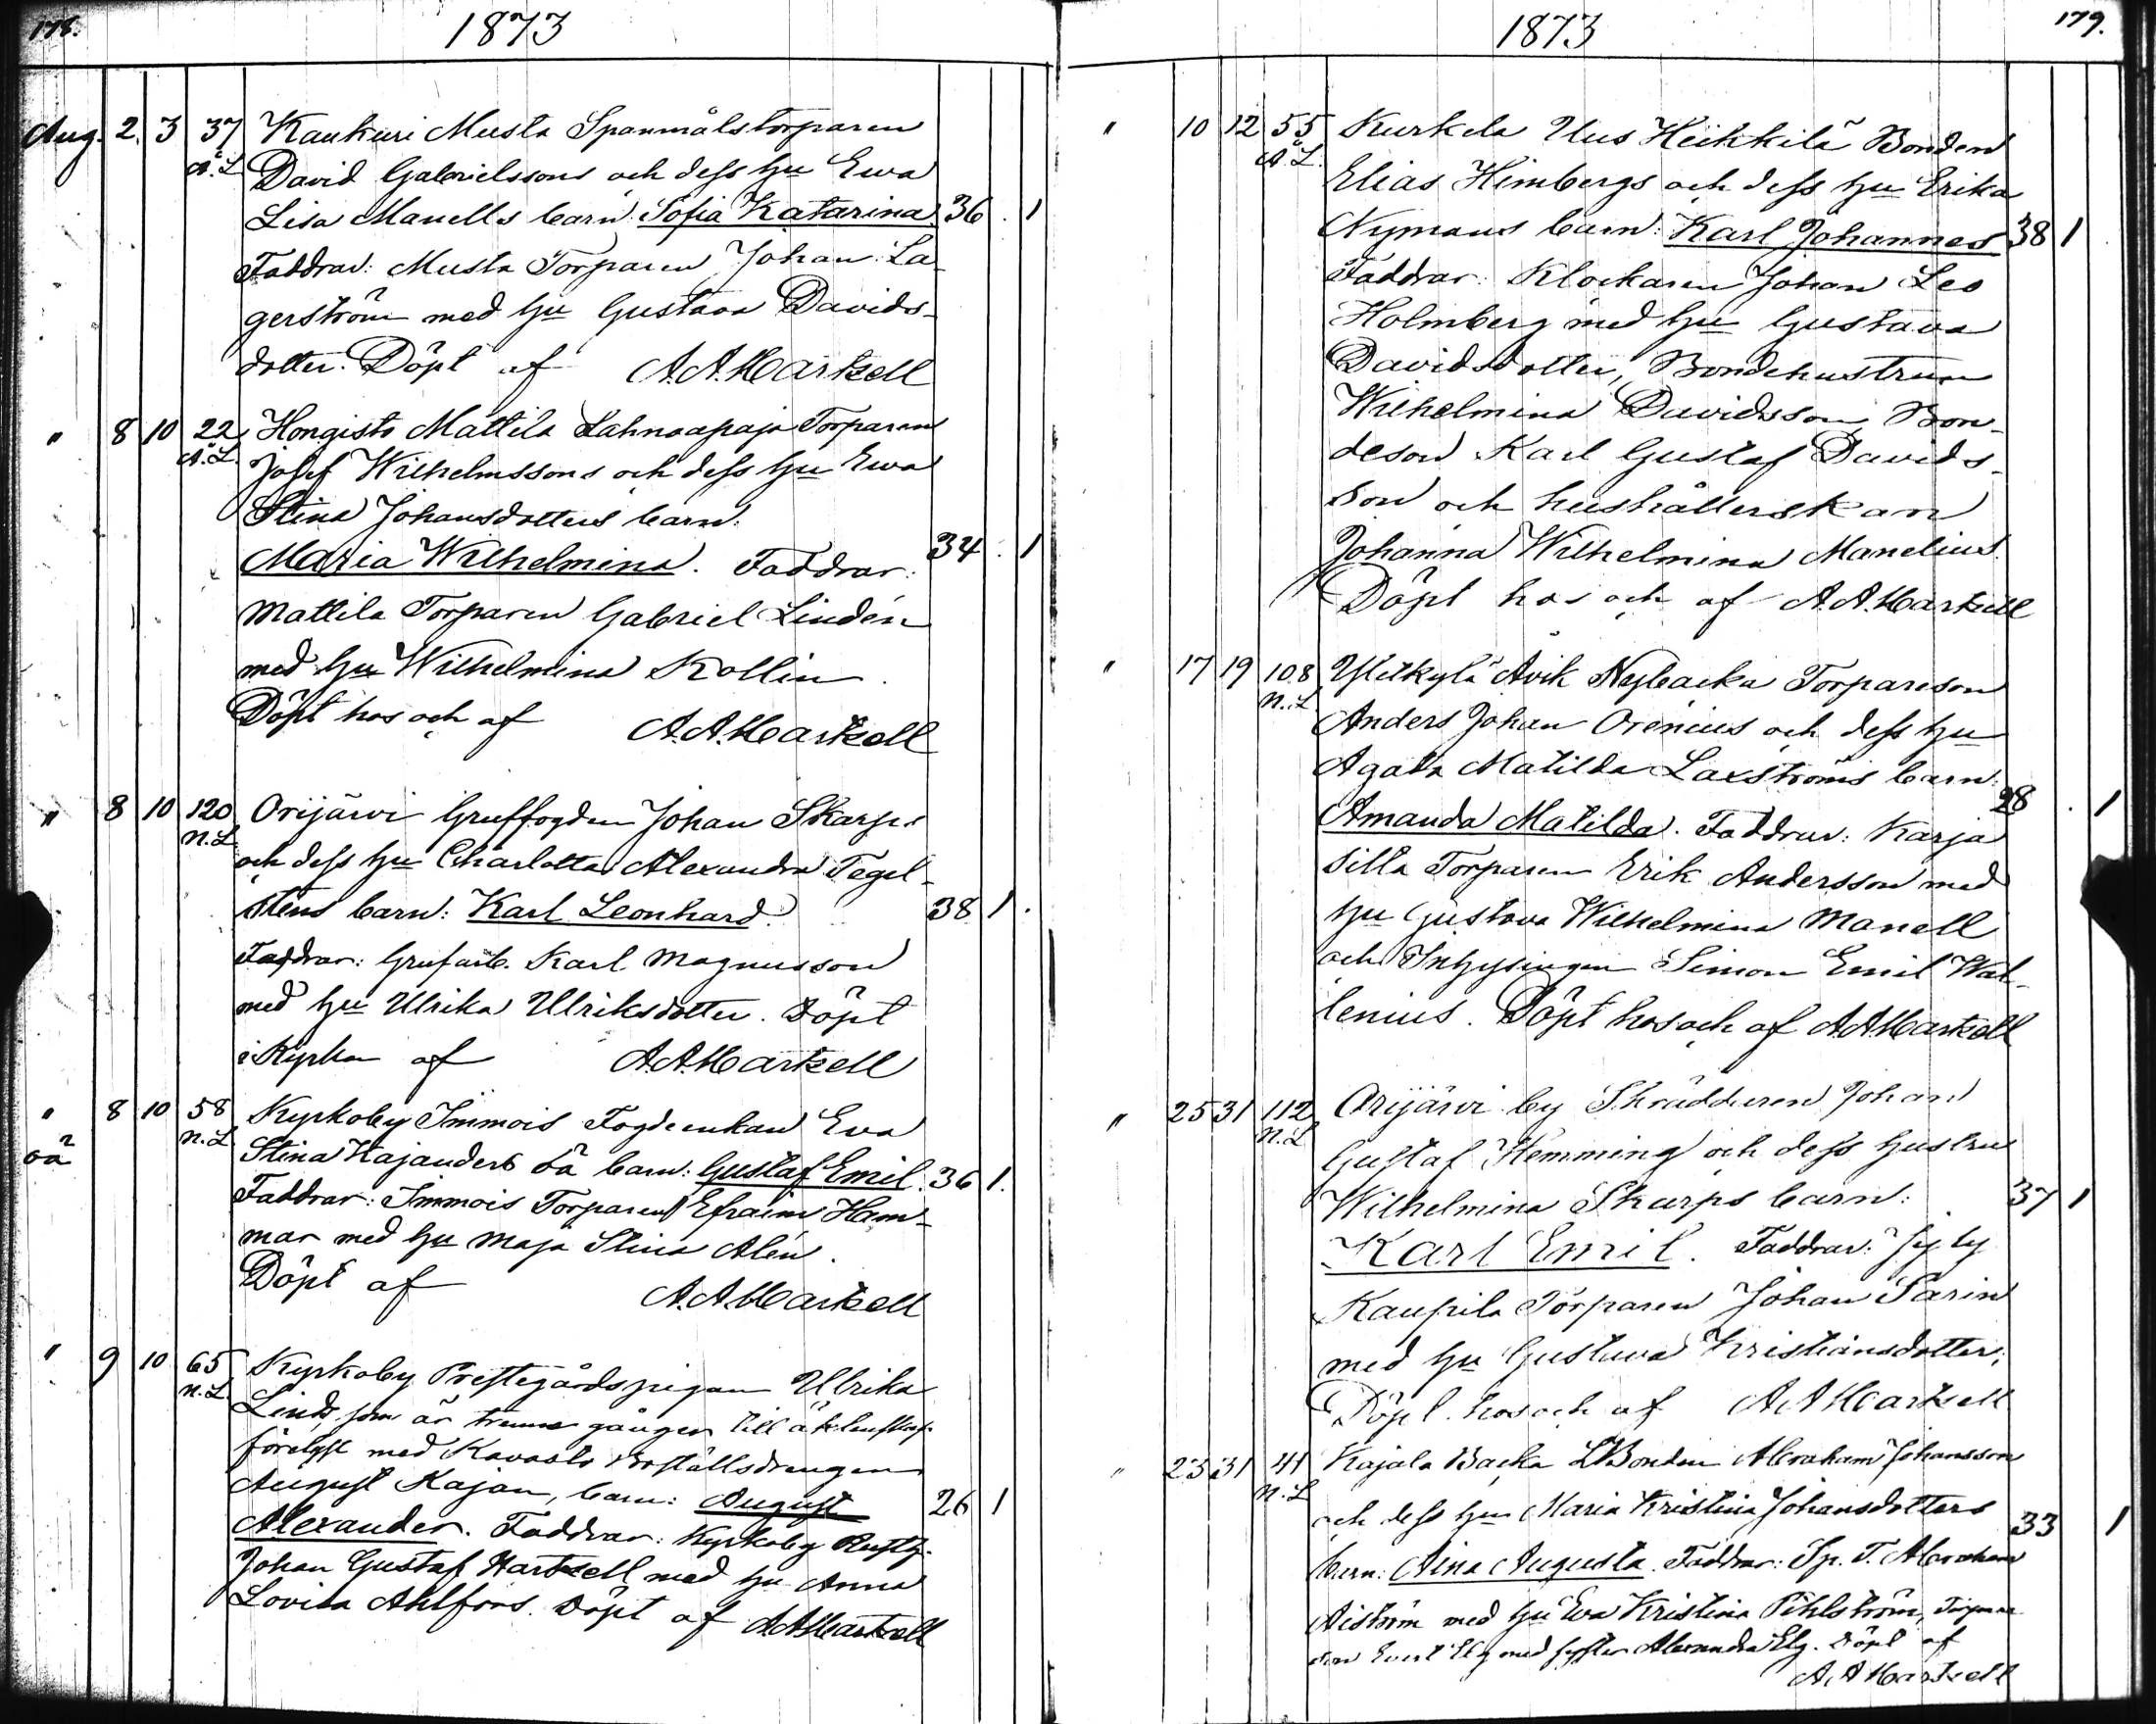 178.
1873
Aug. 2. 3 37 Kaukuri Musta Spanmålstorparen
Å.L. David Gabrielssons och dess hu Ewa
Lisa Manells barn: Sofia Katarina 36 . 1
Faddrar: Musta Torparen Johan La-
gerström med hu Gustava Davids-
dotter. Döpt af A.A. Hartzell
" 8 10 22 Hongisto Mattila Lahnaapaja Torparen
Å.L. Josef Wilhelmssons och dess hu Ewa
Stina Johansdotters barn:
Maria Wilhelmina. Faddrar: 34 . 1
Mattila Torparen Gabriel Lindén
med hu Wilhelmina Kollin.
Döpt hos och af A.A. Hartzell
" 8 10 120 Orijärvi Gruffogden Johan Skarps
N.L. och dess hu Charlotta Alexandra Tegel-
stens barn: Karl Leonhard. 38 1.
Faddrar: Grufarb. Karl Magnusson
med hu Ulrika Ulriksdotter. Döpt
i Kyrkan af A.A. Hartzell
" 8 10 58 Kyrkoby Immois Fogdeenkan Eva
oä N.L. Stina Kajanders oä barn: Gustaf Emil. 36 1.
Faddrar: Immois Torparen Efraim Ham-
mar med hu Maja Stina Alén.
Döpt af A.A. Hartzell
" 9 10 65 Kyrkoby Prestegårdspigan Ulrika
N.L. Lind, som är trenne gånger till äktenskap
förelyst med Kavasto Boställsdrengen
August Kajan, barn: August 26 1
Alexander. Faddrar: Kyrkoby Rusth.
Johan Gustaf Hartzell med hu Anna
Lovisa Ahlfors. Döpt af A.A. Hartzell
179.
1873
" 10 12 55 Kurkela Uus Heikkilä Bonden
Å.L. Elias Himbergs och dess hu Erika
Nymans barn: Karl Johannes 38 1
Faddrar: Klockaren Johan Leo
Holmberg med hu Gustava
Davidsdotter, Bondehustrun
Wilhelmina Davidsson, Bon-
deson Karl Gustaf Davids-
son och hushållerskan
Johanna Wilhelmina Manelius.
Döpt hos och af A.A. Hartzell
" 17 19 108 Ylikylä Avik Nybacka Torpareson
N.L. Anders Johan Orenius och dess hu
Agata Matilda Laxströms barn:
Amanda Matilda. Faddrar: Karja 28 . 1
silta Torparen Erik Andersson med
hu Gustava Wilhelmina Manell
och Inhysingen Simon Emil Wal-
lenius. Döpt hos och af A.A. Hartzell
" 25 31 112 Orijärvi by Skräddaren Johan
N.L. Gustaf Flemming och dess hustru
Wilhelmina Skarps barn: 37 1
Karl Emil. Faddrar:
Kaupila Torparen Johan Sarin
med hu Gustava Kristiansdotter;
Döpt hos och af A.A. Hartzell
" 25 31 41 Kajala Backa LBonden Abraham Johansson
N.L. och dess hu Maria Kristina Johansdotters 33 1
barn: Aina Augusta. Faddrar: Sp. T. Abraham
Aiström med hu Eva Kristina Pihlström,
Evert Elg med syster Alexandra Elg. Döpt af
A.A. Hartzell